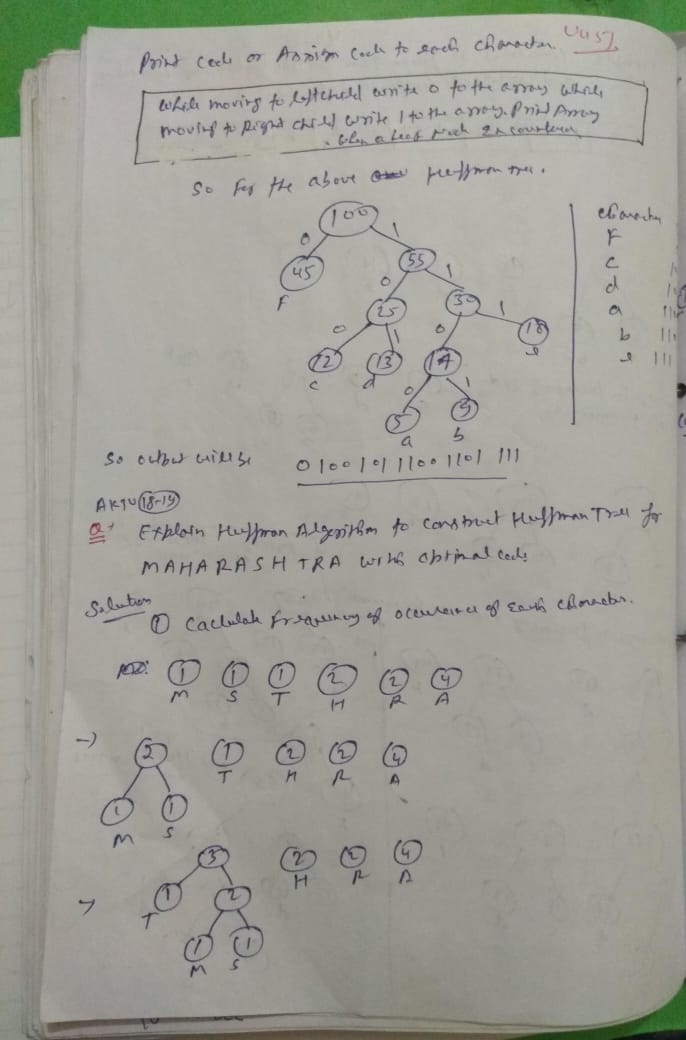 Print code or Assign code to each character.
While moving to left child write 0 to the array while
moving to Right child write 1 to the array. Print Array
when a leaf node encountered
So For the above Huffman tree.
100
0 1
45 55
F
0 1
25 30
0 1 0 1
12 13 14 18
c d e
0 1
5 9
a b
character
F
c
d
a
b
e 111
So output will be 0 100 101 1100 1101 111
AKTU 18-19
Q: Explain Huffman Algorithm to construct Huffman Tree for
MAHARASHTRA with optimal code
Solution
① Caclulate frequency of occurence of each character.
1 1 1 2 2 4
M S T H R A
→ 2 1 2 2 4
T H R A
1 1
M S
3 2 2 4
H R A
→ 1 2
T
1 1
M S